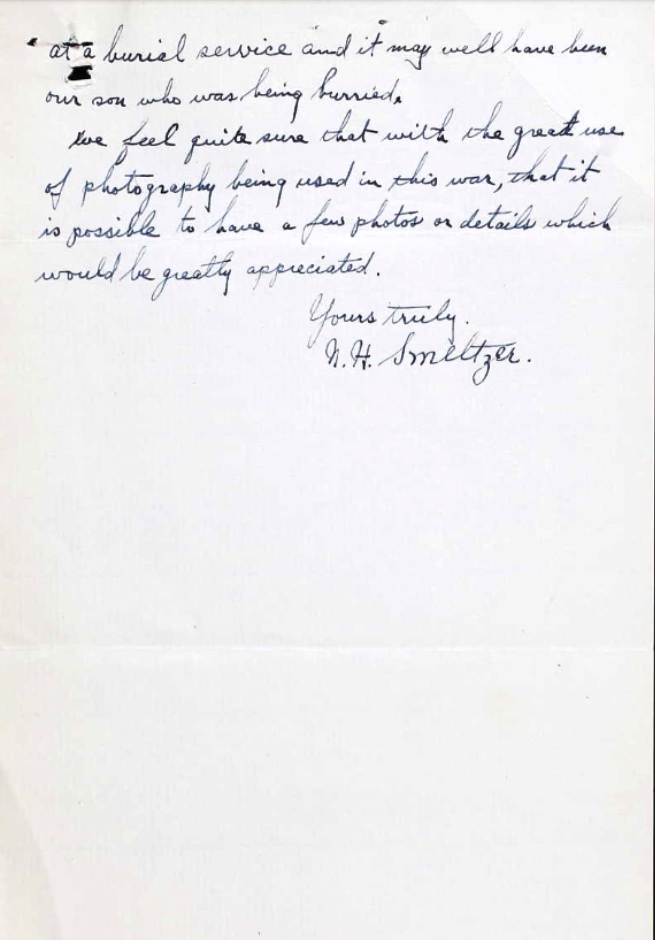 at a burial service and it may well have been
our son who was being burried.
We feel quite sure that with the great use
of photography being used in this war, that it
is possible to have a few photos or details which
would be greatly appreciated.
Yours truly.
N.H. Smeltzer.